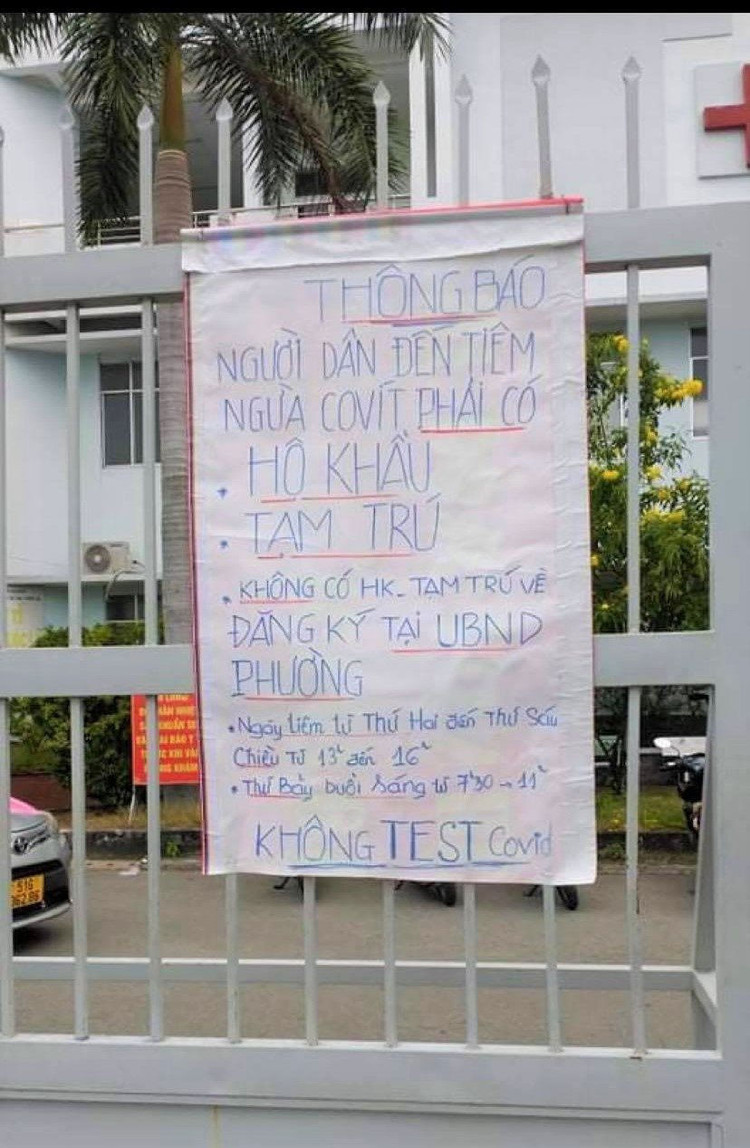 THÔNG BÁO
NGƯỜI DÂN ĐẾN TIÊM
NGỪA COVIT PHẢI CÓ
. HỘ KHẨU
. TẠM TRÚ
. KHÔNG CÓ HK_ TẠM TRÚ VỀ
ĐĂNG KÝ TẠI UBND
PHƯỜNG
. Ngày tiêm từ Thứ Hai đến Thứ Sáu
Chiều Từ 13h đến 16h
. Thứ Bảy buổi Sáng từ 7h30 → 11h
KHÔNG TEST Covid
51G